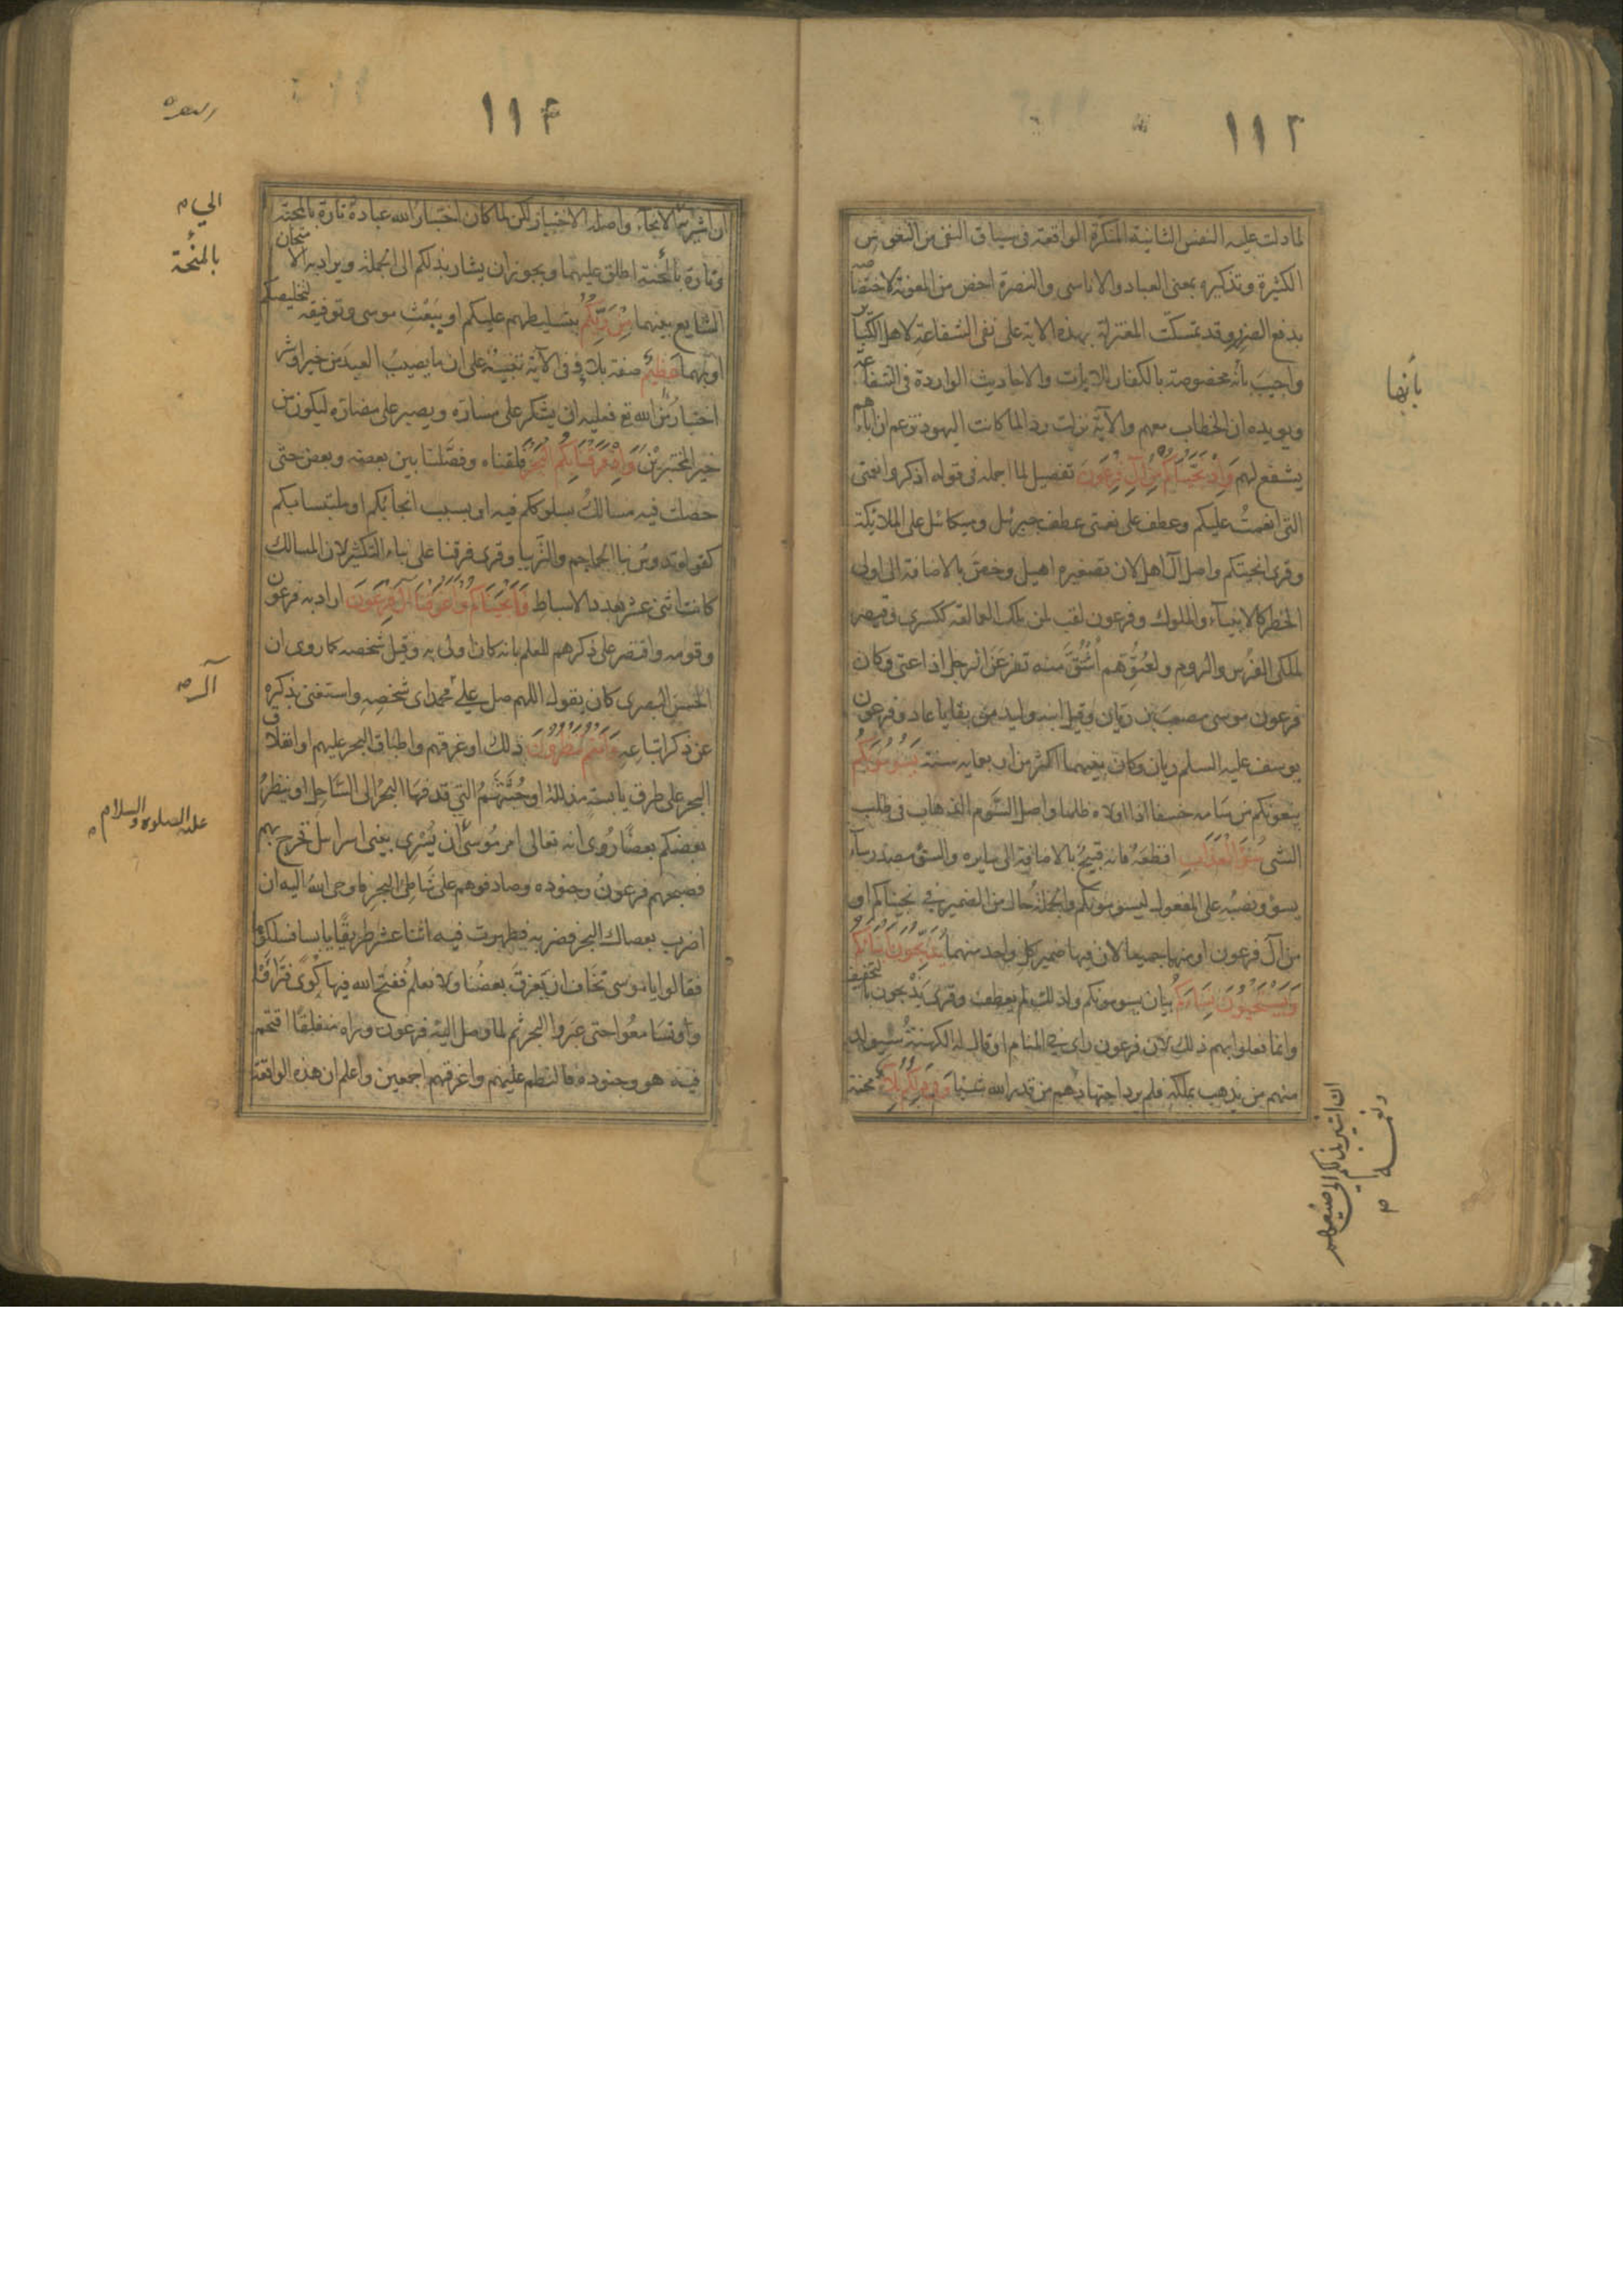 ١١٣
لما دلت عليه النفس الثانية المنكرة الواقعة فى سياق النفى من النفوس
الكثيرة وتذكيره بمعنى العباد والاناسى والنصرة اخص من المعونة لاختصاصه
بدفع الضر وقد تمسكت المعتزلة بهذه الاية على نفى الشفاعة لاهل الكبآ
واجيب بأنه مخصوصة بالكفار للايات والاحاديث الواردة فى الشفاعة
ويويده ان الخطاب معهم والآية نزلت ردا لما كانت اليهود تزعم ان اباءهم
يشفع لهم وَاِذْ نَجَّيْنَاكُمْ مِنْ آلِ فِرْعَوْنَ تفصيل لما اجمله فى قوله اذكروا نعمتى
التى انعمتُ عليكم وعطف على نعمتى عطف جبرئل وميكائل على الملائكة
وقرى انجيتكم واصل آل اهل لان تصغيره اهيل وخصّ بالاضافة الى اولى
الخطر كالانبيآء والملوك وفرعون لقب لمن ملك العمالقة ككسرى وقيصر
لملكى الفرس والروم ولعتوّهم اُشتُقّ منه تفرعَن الرجل اذا عتى وكان
فرعون موسى مصعب بن ريان وقيل ابنه وليد من بقايا عاد وفرعون
يوسف عليه السلم ريان وكان بينهما اكثر من اربعمايه سنة يَسُومُونَكُمْ
يبغونكم من سامه خسفا اذا اولاه ظلما واصل السَّوم الذهاب فى طلب
الشى سُوءَ الْعَذَابِ افظعَهُ فانه قبيحٌ بالاضافة الى سايره والسوء مصدر سآء
يسوؤ ونصبُه على المفعول ليسومونكم والجملة حال من الضمير فى نجيناكم او
من آل فرعون او منها جميعا لان فيها ضمير كل واحد منهما يُذَبِّحُونَ اَبْنَاءَكُمْ
وَيَسْتَحْيُونَ نِسَاءَكُمْ بيان يسومونكم ولذلك لم يعطف وقرى يَذْبحون بالتخفيف
وانما فعلوا بهم ذلك لان فرعون راى فى المنام او قال له الكهنةُ سيُولد
منهم من يذهب بملكه فلم يرد اجتهادهم من قدر الله شيئا وَفِى ذَلِكُمْ بَلَآءٌ محنة
بأنها
ان اشير بذلكم الى صنيعهم
ونعمة
١١٤
ان اشير به الى الانجآء واصله الاختبار لكن لما كان اختبار الله عباده تارة بالمحنة
وتارة بالمنحة اطلق عليهما ويجوز ان يشار بذلكم الى الجملة ويراد به الامتحان
الشايع بينهما مِنْ رَبِّكُمْ بتسليطهم عليكم او يبَعْثِ موسى وتوفيقه لتخليصكم
او بهما عظيمٌ صفة بلاء وفى الآية تنبيه على ان ما يصيبُ العبد من خير او شر
اختبارٌ من الله تع فعليه ان يشكر على مسارّه ويصبر على مضارّه ليكون من
خير المختبرين وَاِذْ فَرَقْنَا بِكُمُ الْبَحْرَ فلقناه وفصّلنا بين بعضه وبعض حتى
حصلت فيه مسالكُ بسلوككم فيه او بسبب انجائكم او ملتبسا بكم
كقوله تدوس بنا الجماجم والتَّريبا وقرى فرقنا على بناء التكثير لان المسالك
كانت اثنى عشر بعدد الاسباط فَاَنْجَيْنَاكُمْ وَاَغْرَقْنَا آلَ فِرْعَوْنَ اراد به فرعون
وقومه واقتصر على ذكرهم للعلم بانه كان اولى به وقيل شخصه كما روى ان
الحسن البصرى كان يقول اللهم صل على محمد اى شخصِهِ واستغنى بذكره
عن ذكر اتباعه وَاَنْتُمْ تَنْظُرُونَ ذلك او غرقهم واطباق البحر عليهم او انفلاق
البحر على طرق يابسةٍ مذللة او جُثَّثهم التى قدفها البحرُ الى السَّاحل او ينظرُ
بعضكم بعضًا رُوى انه تعالى امر مُوسىٰ ان يُسْرى ببنى اسرائل فخرج بهم
فصبحهم فرعونُ وجنوده وصادفوهم على شاطئ البحر فاوحى اللهُ اليه ان
اضرب بعصاك البحر فضربه فظهرت فيه اثنا عشر طريقًا يابسا فسلكوها
فقالوا يا موسى نخاف ان يَغرقَ بعضُنا ولا نعلم ففتح الله فيها كُوًى فتراءَوا
وتسامعُوا حتى عبَروا البحر ثم لما وصل اليه فرعون وراه منفلقًا اقتحم
فيه هو وجنوده فالتطم عليهم واغرقهم اجمعين واعلم ان هذه الواقعة
الى م
بالمنحة
آلـ م
عليه الصلوة والسلام م